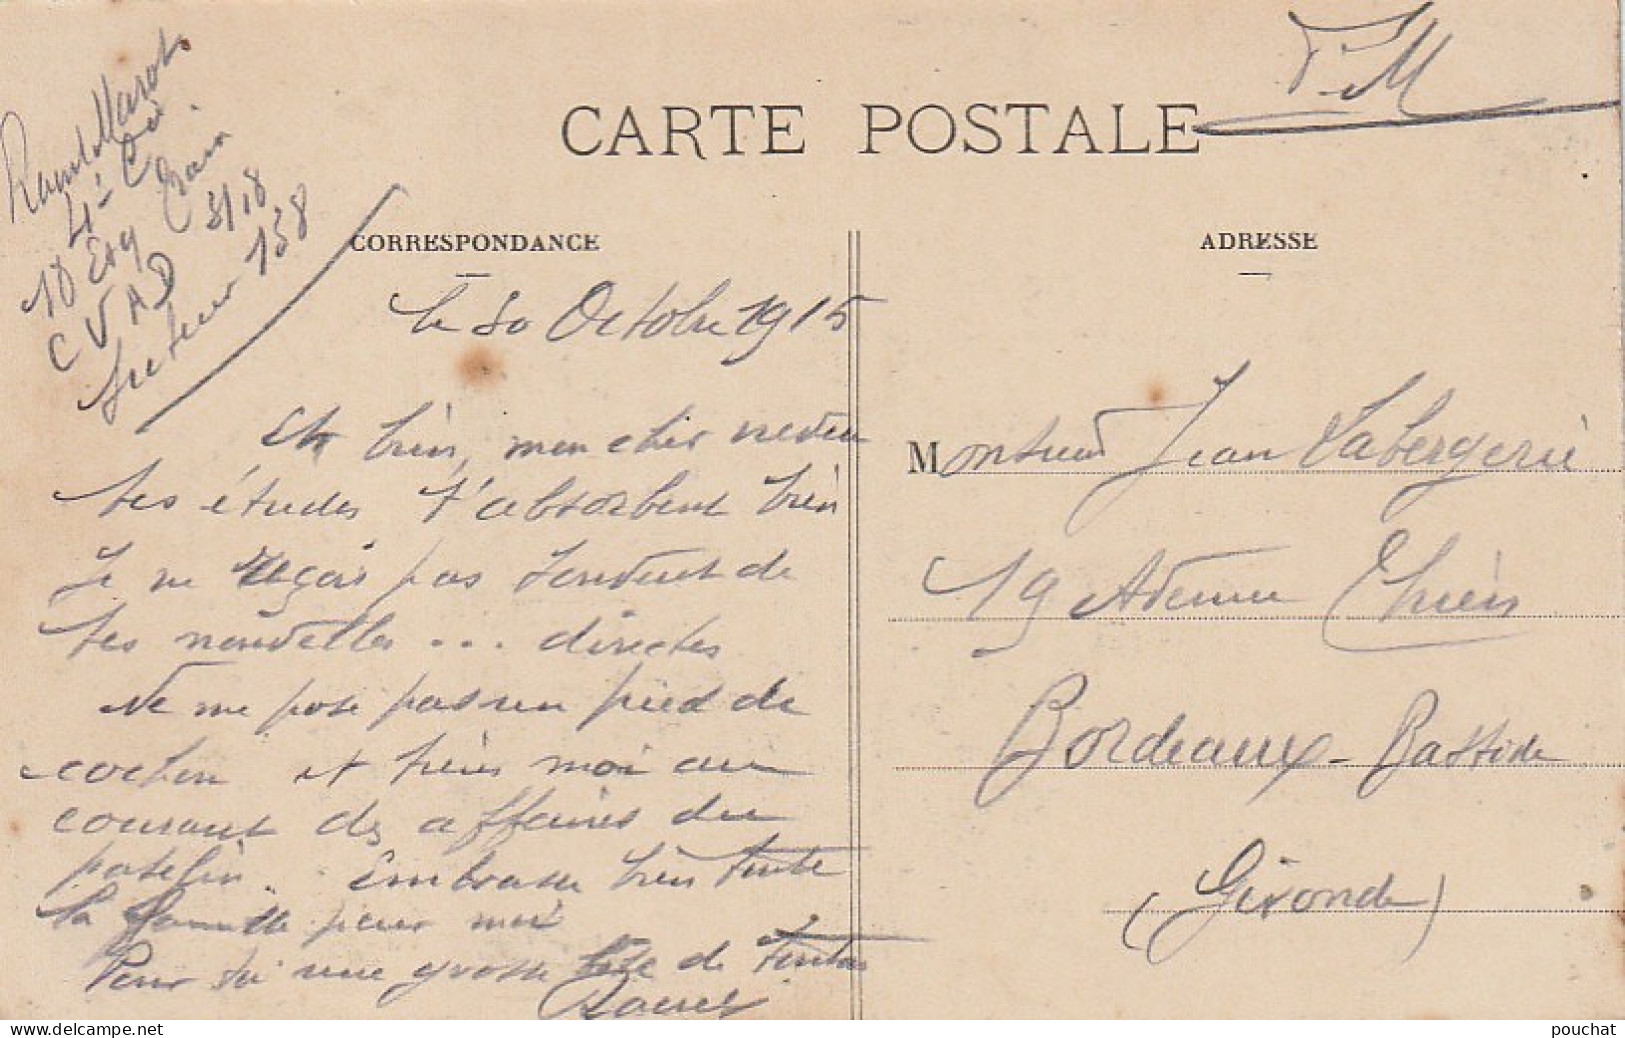 F.M
CARTE POSTALE
Raoul Marot
4e Cie
18 Esq Train
C V A D 31/18
Secteur 138
CORRESPONDANCE
ADRESSE
le 30 Octobre 1915
Eh bien, mon cher neveu
tes études t'absorbent bien
Je ne reçois pas souvent de
tes nouvelles ... directes
Ne me pose pas un pied de
cochon et tiens moi au
courant des affaires du
patelin. Embrasse bien toute
la famille pour moi
Pour toi une grosse bise de Tonton
Raoul
Monsieur Jean Labergerie
19 Avenue Thiers
Bordeaux-Bastide
(Gironde)
pouchat